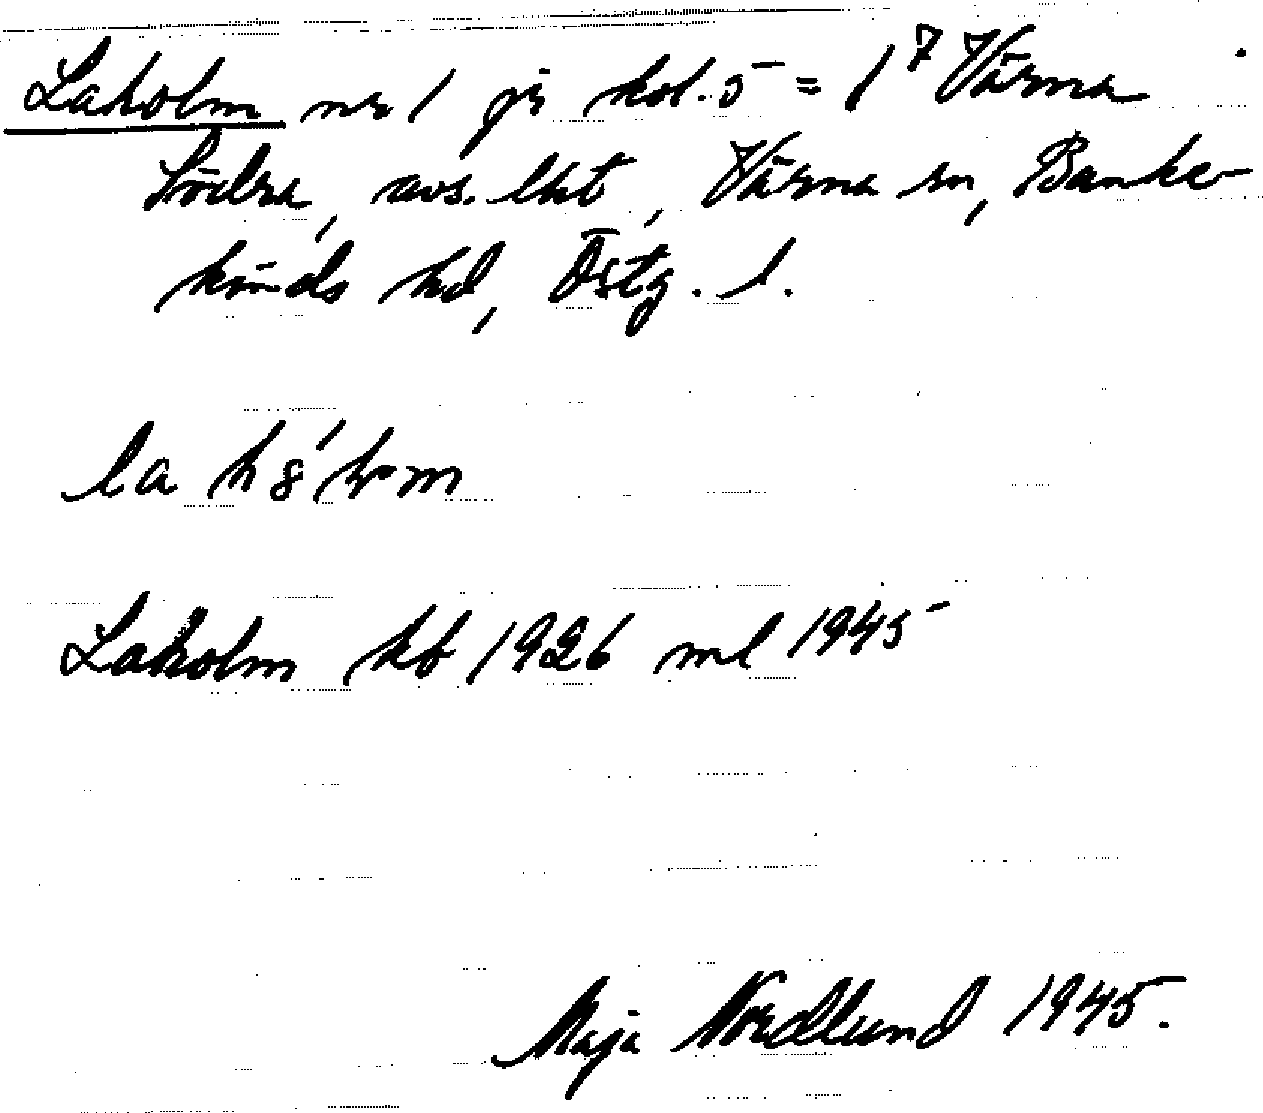 Laholm nr 1 jr kol. 5 = 1⁷ Värna
Södra, avs. lht, Värna sn, Banke-
kinds hd, Östg. l.
Laholm kb 1926 ml 1945
Maja Nordlund 1945.